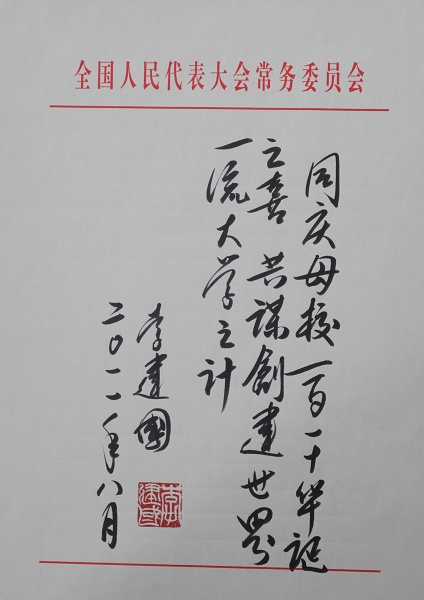 全国人民代表大会常务委员会
同庆母校一百一十华诞
之喜 共谋創建世界
一流大学之计
李建國
二〇一一年八月
李建國